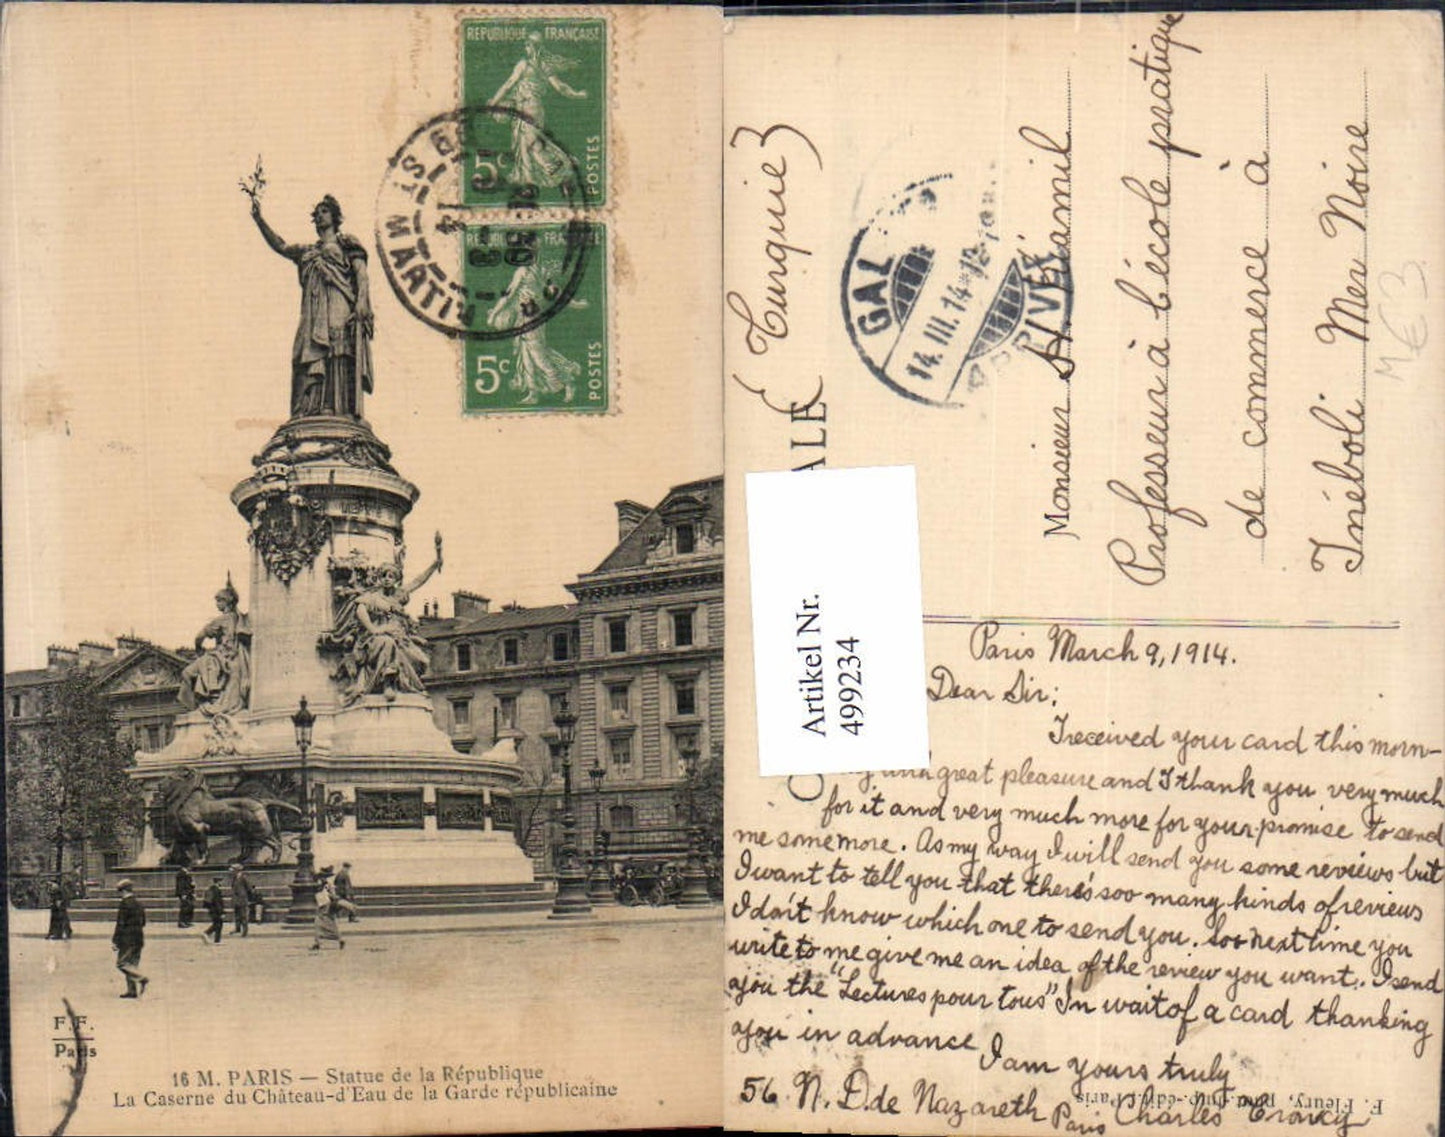 REPUBLIQUE FRANÇAISE
5c
POSTES
REPUBLIQUE FRANÇAISE
5c
POSTES
F. F.
Paris
16 M. PARIS — Statue de la République
La Caserne du Château-d'Eau de la Garde républicaine
(Turquie)
ALE
GAL
14. III. 14
Monsieur H. Kiamil
Professeur à l'école pratique
de commerce à
Inéboli Mer Noire
M€3
Artikel Nr.
499234
Paris March 9, 1914.
Dear Sir:
I received your card this morn-
great pleasure and I thank you very much
for it and very much more for your promise to send
me some more. As my way I will send you some reviews but
I want to tell you that there's soo many kinds of reviews
I don't know which one to send you. Soo next time you
write to me give me an idea of the review you want. I send
you the "Lectures pour tous" In wait of a card thanking
you in advance
I am yours truly
56 N. D. de Nazareth Paris Charles
F. Fleury, Paris